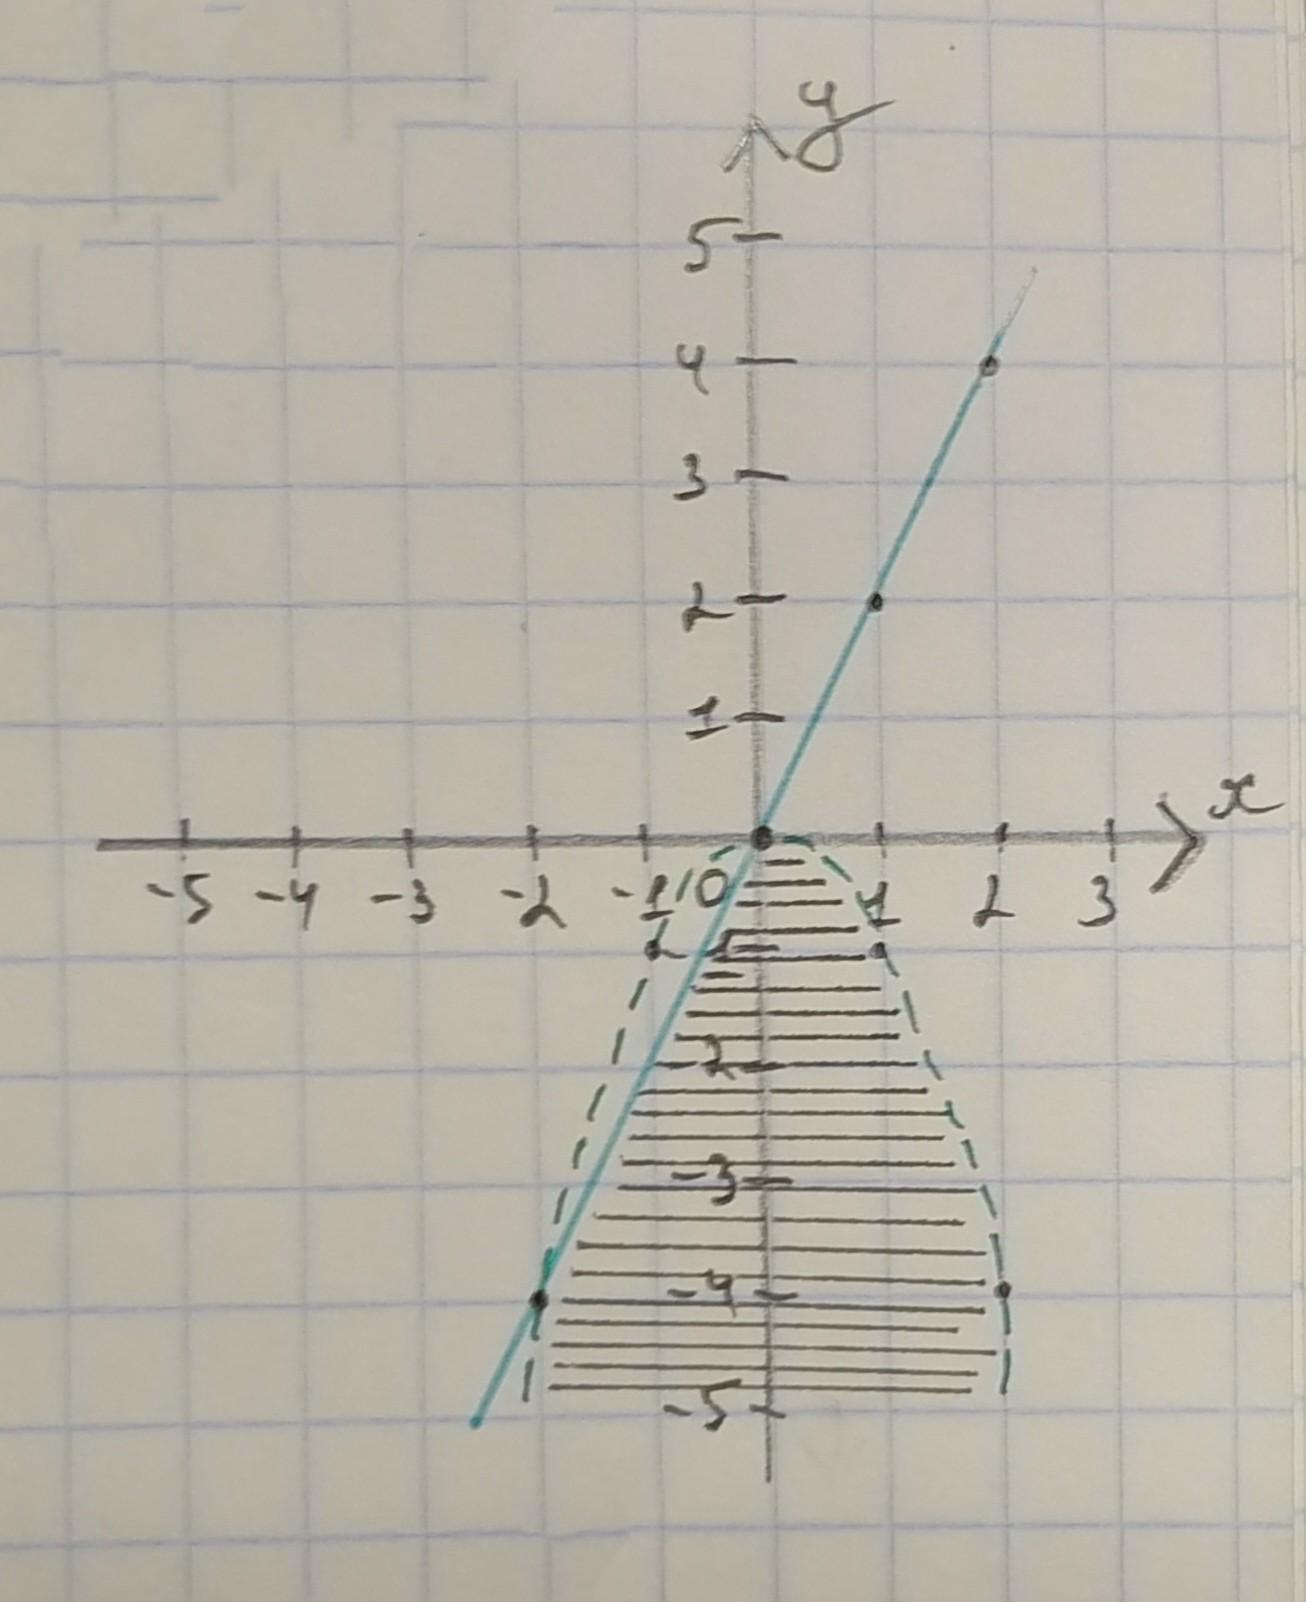 y
5
4
3
2
1
x
-5 -4 -3 -2 -1 0 1 2 3
-3
-4
-5